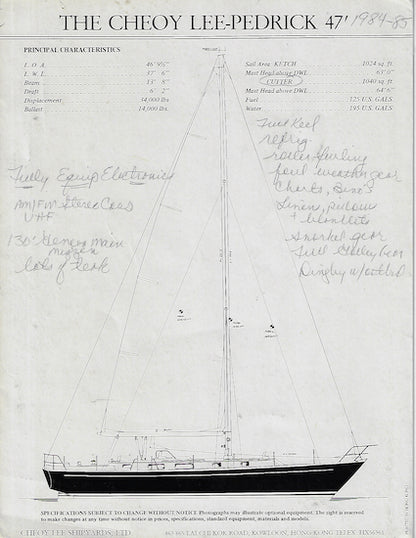 THE CHEOY LEE-PEDRICK 47' 1984-85
PRINCIPAL CHARACTERISTICS
L. O. A. 46' 9½"
L. W. L. 37' 6"
Beam 13' 8"
Draft 6' 2"
Displacement 34,000 lbs
Ballast 14,000 lbs.
Sail Area KETCH 1024 sq. ft.
Mast Head above DWL 63' 0"
CUTTER 1040 sq. ft.
Mast Head above DWL 64' 6"
Fuel 125 U.S. GALS
Water 195 U.S. GALS
Full Keel
refrig
roller furling
foul weather gear
Charts, Bino's
Linen, pillow
+ blankets
snorkel gear
Full Galley
Dinghy w/ outbd
Fully Equip Electronics
AM/FM Stereo Cass
VHF
130' Genoa main
mizzen
lots of teak
SPECIFICATIONS SUBJECT TO CHANGE WITHOUT NOTICE Photographs may illustrate optional equipment. The right is reserved
to make changes at any time without notice in prices, specifications, standard equipment, materials and models.
CHEOY LEE SHIPYARDS, LTD. LAI CHI KOK ROAD, KOWLOON, HONG KONG